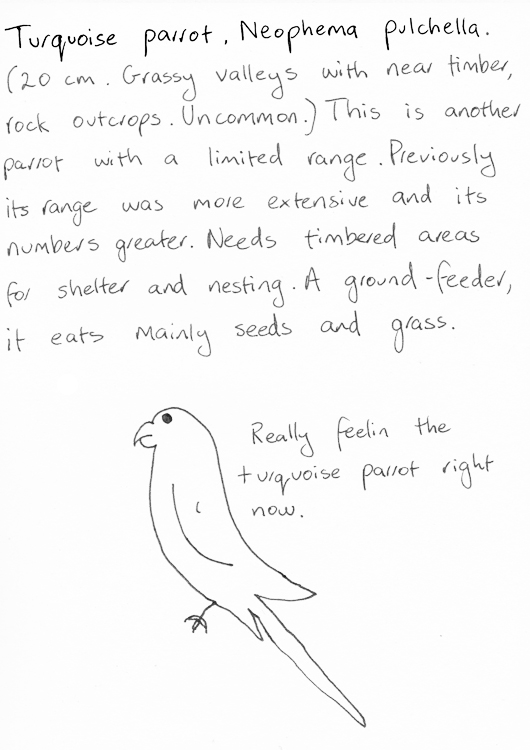 Turquoise parrot, Neophema pulchella.
(20 cm. Grassy valleys with near timber,
rock outcrops. Uncommon.) This is another
parrot with a limited range. Previously
its range was more extensive and its
numbers greater. Needs timbered areas
for shelter and nesting. A ground-feeder,
it eats mainly seeds and grass.
Really feelin the
turquoise parrot right
now.